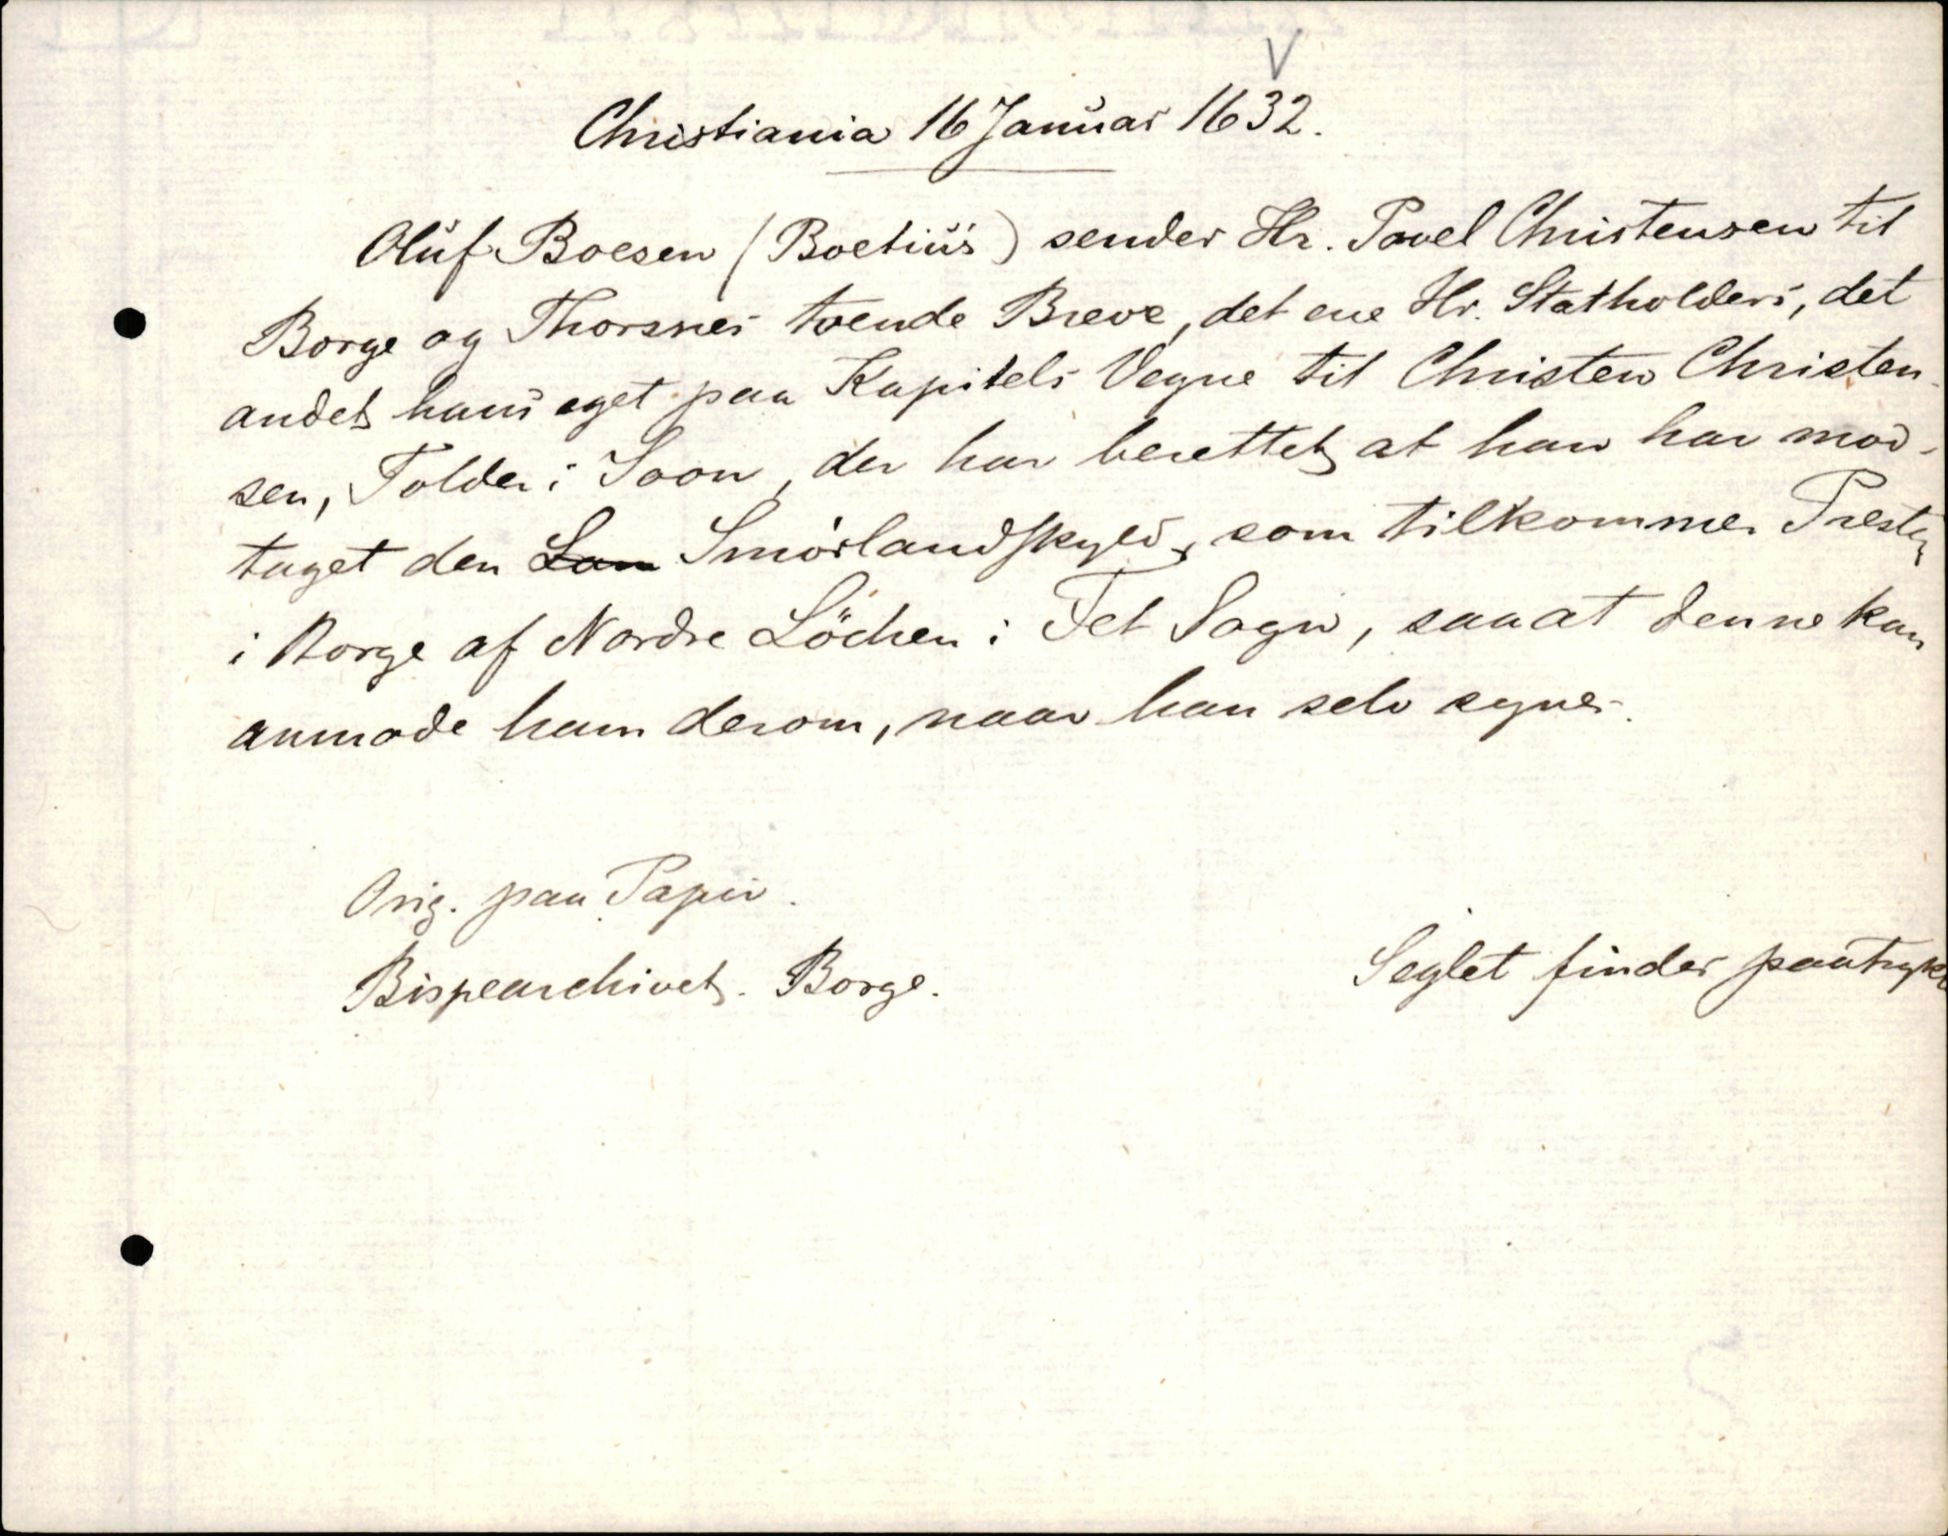 V
Christiania 16 Januar 1632.
Oluf Boesen (Boetius) sender Hr. Povel Christensen til
Borge og Thorsnes tvende Breve, det ene Hr. Statholders, det
andet hans eget paa Kapitels Vegne til Christen Christen-
sen, Tolder i Soon, der har berettet at han har mod-
taget den Lan Smörlandskyld, som tilkommer Presten
i Borge af Nordre Löchen i Fet Sogn, saa at denne kan
anmode ham derom, naar han selv synes.
Orig. paa Papir.
Bispearchivet. Borge.
Seglet findes paatrykt